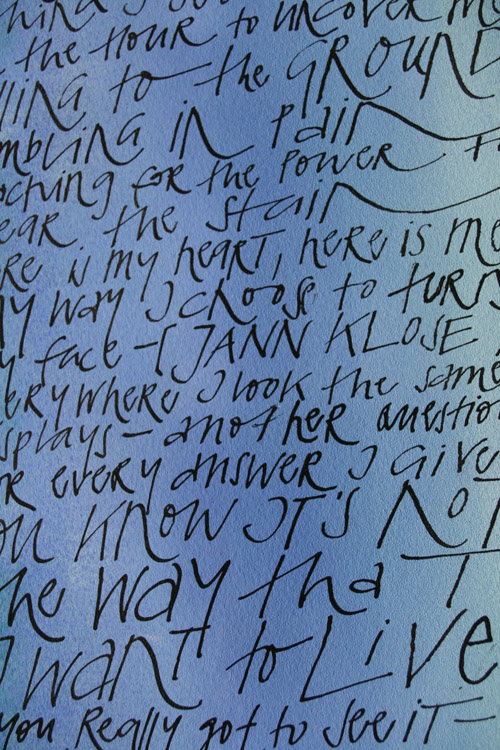 the HOUR to UNCOVER me
to the GROUND
IN PAIN
FOR the POWER
the stain
is my heart, here is me
way I choose to turn
face – [JANN KLOSE
everywhere I look the same
displays – another question
every answer I give
you KNOW IT'S NOT
the way that
I WANT to LIVE
you Really got to see it –